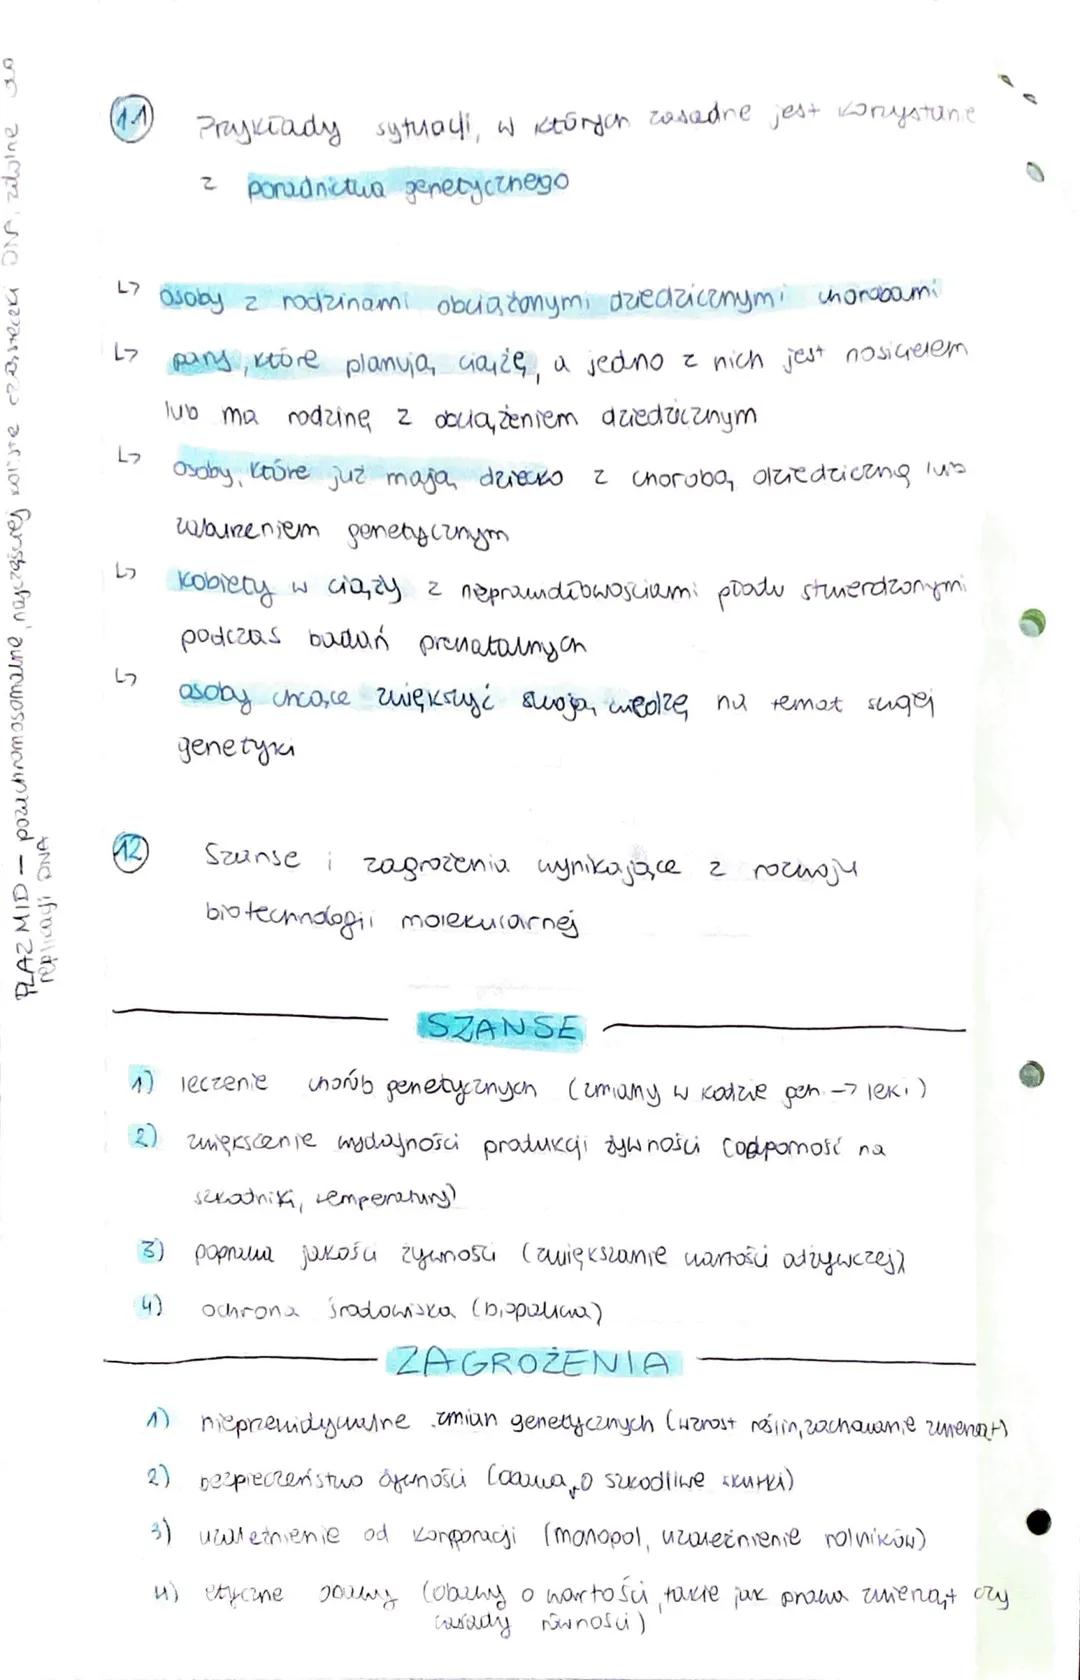 11 Przykłady sytuacji, w których zasadne jest korzystanie
z poradnictwa genetycznego
↳ osoby z rodzinami obciążonymi dziedzicznymi chorobami
↳ pary, które planują ciążę, a jedno z nich jest nosicielem
lub ma rodzinę z obciążeniem dziedzicznym
↳ osoby, które już mają dziecko z chorobą dziedziczną lub
zaburzeniem genetycznym
↳ kobiety w ciąży z nieprawidłowościami płodu stwierdzonymi
podczas badań prenatalnych
↳ osoby chcące zwiększyć swoją wiedzę na temat swojej
genetyki
12 Szanse i zagrożenia wynikające z rozwoju
biotechnologii molekularnej
SZANSE
1) leczenie chorób genetycznych (zmiany w kodzie gen. → leki)
2) zwiększenie wydajności produkcji żywności (odporność na
szkodniki, temperatury)
3) poprawa jakości żywności (zwiększanie wartości odżywczej)
4) ochrona środowiska (biopaliwa)
ZAGROŻENIA
1) nieprzewidywalne zmian genetycznych (wzrost roślin, zachowanie zwierząt)
2) bezpieczeństwo żywności (obawa o szkodliwe skutki)
3) uzależnienie od korporacji (monopol, uzależnienie rolników)
4) etyczne obawy (obawy o wartości, takie jak prawa zwierząt czy
zasady równości)
PLAZMID – pozachromosomalne, najczęściej koliste cząsteczki DNA, zdolne do
replikacji DNA